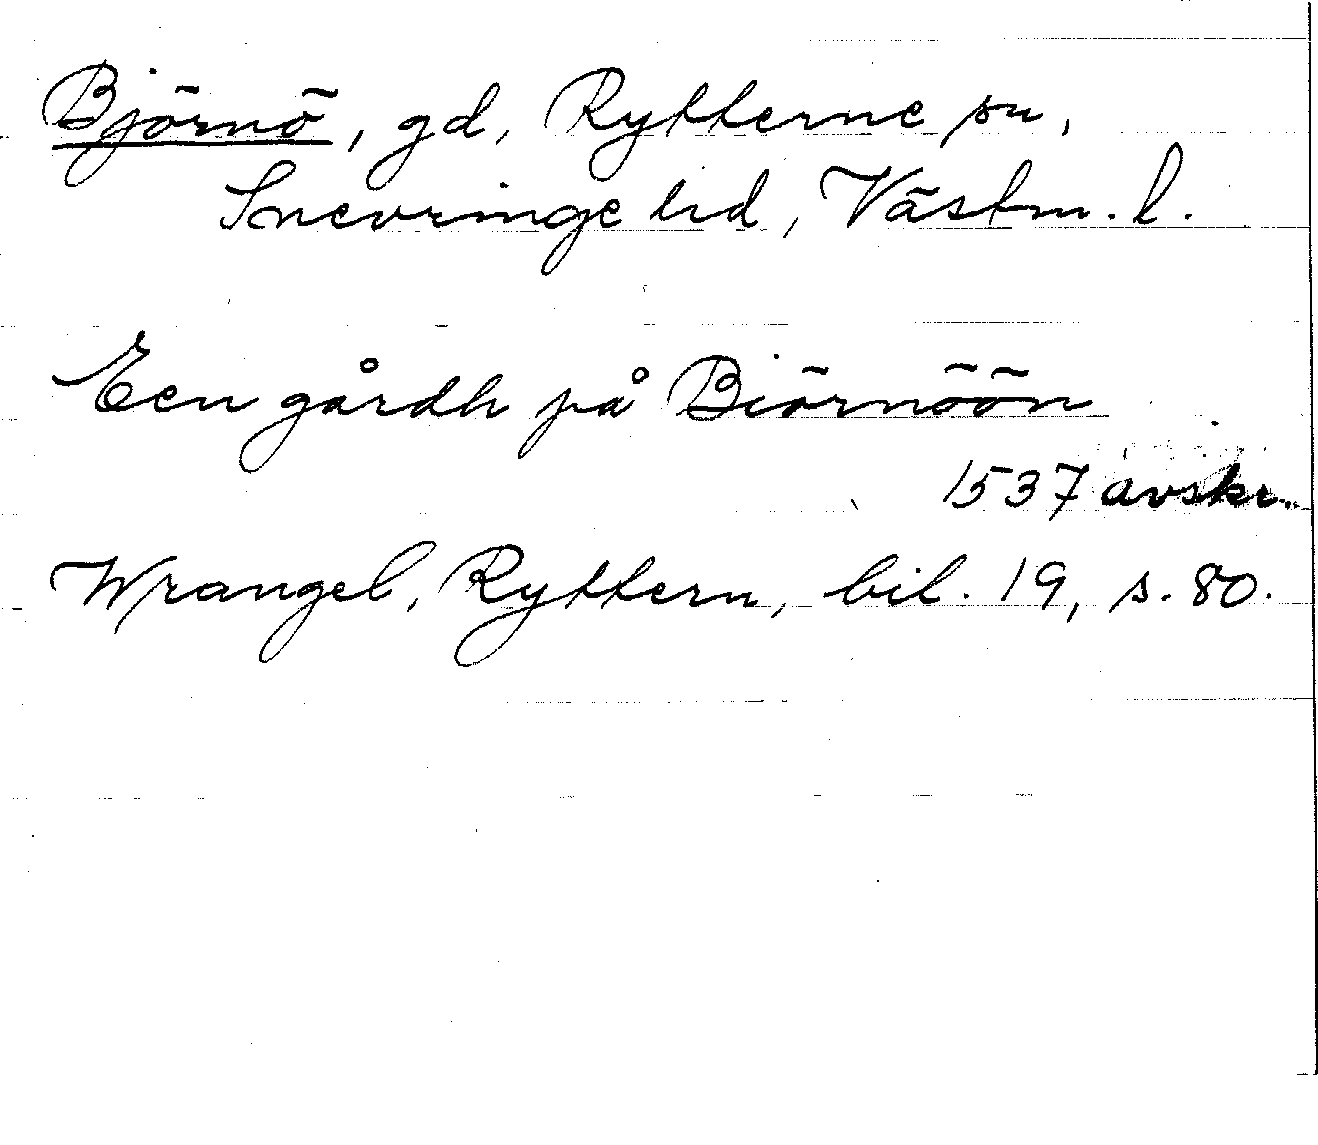 Björnö, gd, Rytterne sn,
Snevringe hd, Västm. l.
Een gårdh på Biörnöön
1537 avskr.
Wrangel, Ryttern, bil. 19, s. 80.